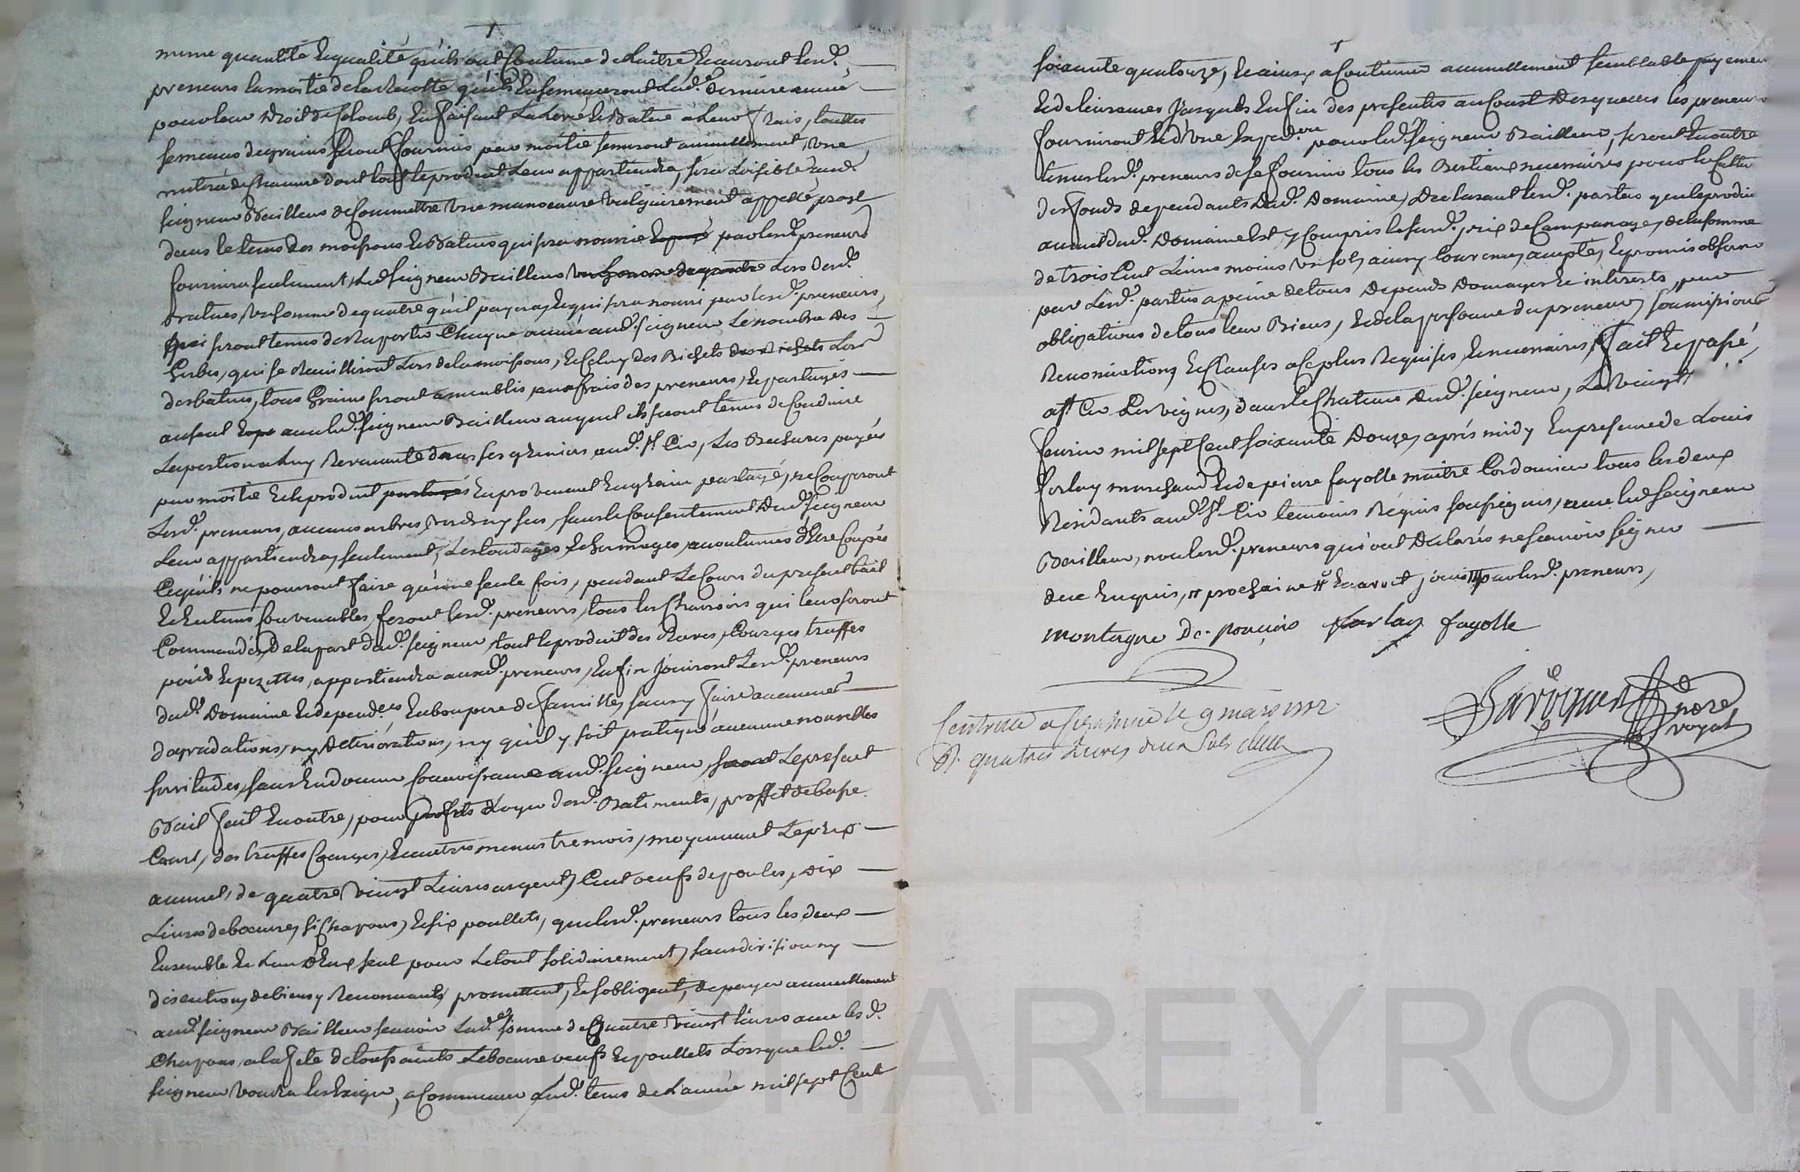 meme quantité et qualité qu'ils ont Coutume de L'aitre et auront lesd.
preneurs la moitié de la Recolte qu'ils Ensemenceront lad.e derniere année
pour leur Droit de Coloub, En faisant La levée et Batue a leurs frais, touttes
semences de grains seront fournies par moitié semeront annuellement une
meterée de Chanvre dont tout le produit Leur appartiendra, sera Loisible aud.
seigneur Bailleur de Commettre une manoeuvre vulgairement appellé
dans le tems des moissons et Batues qui sera nourrie par lesd. preneurs
fournira seulement led. seigneur Bailleur Lors desd.
Batues, un homme de quatre qu'il payera, et qui sera nourri par lesd. preneurs,
qui seront tenus de Raporter Chaque année aud. seigneur Le nombre des
Gerbes, qui se Recuilliront Lors de la moisson, et Celuy des Bichets Lors
des batues, tous Grains seront ameublis aux frais des preneurs, et partagés
au seul aud. seigneur Bailleur auquel ils seront tenus de Conduire
La portion a luy Revenante dans ses greniers, aud. St Cir, Les Bechures payées
par moitié et le produit En provenant En grain partagé, ne Coupperont
Lesd. preneurs, aucuns arbres, verds ny secs, sans le Consentement dud. seigneur
Leur appartiendra, seulement, Les tondages, accoutumés d'Etre Coupés
Ce qu'ils ne pourront faire qu'une seule fois, pendant Le Cours du present bail
et En tems Convenables, feront lesd. preneurs, tous les Charrois qui leur seront
Commandés de la part dud. seigneur, tout le produit des Raves, Courges truffes
pois et pezettes, appartiendra auxd. preneurs, Enfin jouiront Lesd. preneurs
dud. Domaine et dependces En bon pere de famille, sans y faire aucunes
degradations, ny Deteriorations, ny qu'il y soit pratiqué aucunne nouvelles
servitudes, sans En donner aud. seigneur, Le present
Bail fait En outre, pour Loyer desd. Batiments, proffit de basse
Court, des truffes Courges, et autres menus tremois, moyennant Le prix
annuel, de quatre vingt Livres argent, Cent oeufs de poules, Dix
Livres de beurre, si Chapons, et six poullets, que lesd. preneurs tous les deux
Ensemble et L'un d'Eux seul pour Le tout solidairement, sans division ny
discution, de biens y Renonceants promettent, et s'obligent, de payer annuellement
aud. seigneur Bailleur scavoir Lad.e somme de Quatre vingt livres avec les d.
Chapons a la fete de toussaints Le beurre oeufs et poullets Lorsque led.
seigneur voudra les Exiger, a Commencer Aud. tems de L'année mil sept Cent
soixante quatorze, et ainsy a Continuer annuellement semblable payement
et delivrances jusques En fin des presentes au Coust Desquelles les preneurs
fourniront et d'une Exped.on pour led. seigneur Bailleur, seront En outre
tenus lesd. preneurs de se fournir tous les Bestiaux necessaires pour la Cultu
des fonds dependants Dud. Domaine, Declarant lesd. parties que le produit
annuel dud. Domaine Est, y Compris le susd. prix de Campanage, de la somme
de trois Cent Livres moins un sol, ainsy Convenu, accepté, et promis observer
par Lesd. parties a peine de tous Depends Domages et interests, par
obligations de tous leurs Biens, et de la personne du preneur, soumissions
Renonciations, et Clauses a Ce plus Requises, et necessaires, fait et passé,
a St Cir Les vignes, dans le Chateau Dud. seigneur, Le vingt
fevrier mil sept Cent soixante Douze, après midy En presence de Louis
Forlay marchand et de pierre fayolle maitre Cordonnier tous les deux
Residants aud. St Cir temoins Requis soussignés, avec led. seigneur
Bailleur, non lesd. preneurs qui ont Declarés ne scavoir signer
de ce Enquis, # prochaine # et avant par lesd. preneurs,
montagne De poncins forlay fayolle
Controllé a le 9 mars 1772
R. quatres Livres deux sols
nore
royal
CHAREYRON